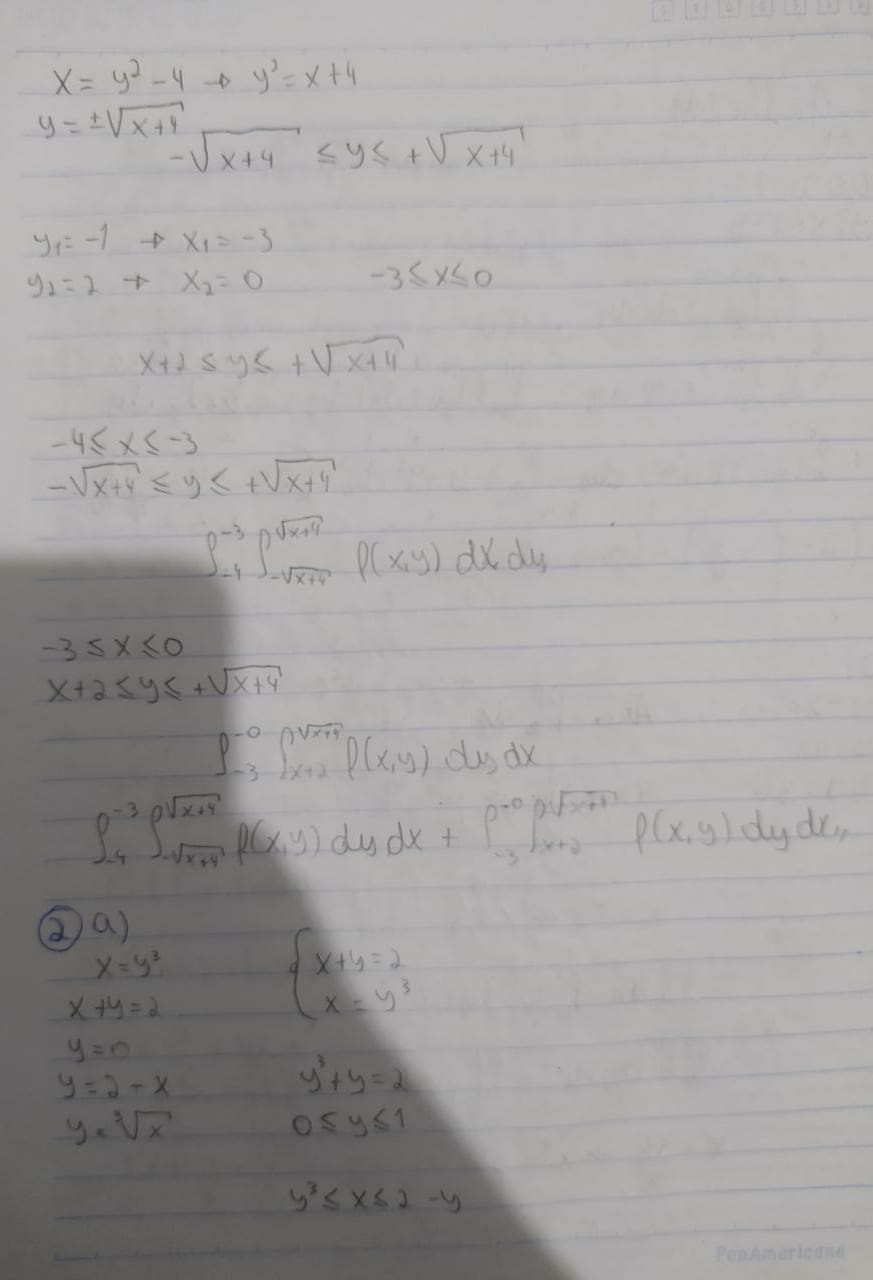 x = y² - 4 → y² = x+4
y = ±√(x+4)
-√(x+4) ≤ y ≤ +√(x+4)
y₁ = -1 → x₁ = -3
y₂ = 2 → x₂ = 0 -3 ≤ x ≤ 0
x+2 ≤ y ≤ +√(x+4)
-4 ≤ x ≤ -3
-√(x+4) ≤ y ≤ +√(x+4)
∫₋₄⁻³ ∫_{-√(x+4)}^{√(x+4)} f(x,y) dx dy
-3 ≤ x ≤ 0
x+2 ≤ y ≤ +√(x+4)
∫₋₃⁻⁰ ∫_{x+2}^{√(x+4)} f(x,y) dy dx
∫₋₄⁻³ ∫_{-√(x+4)}^{√(x+4)} f(x,y) dy dx + ∫₋₃⁻⁰ ∫_{x+2}^{√(x+4)} f(x,y) dy dx,,
② a)
x = y³ { x+y = 2
x+y = 2 x = y³
y = 0
y = 2 - x y³+y = 2
y = ³√x 0 ≤ y ≤ 1
y³ ≤ x ≤ 2 - y
PanAmericana